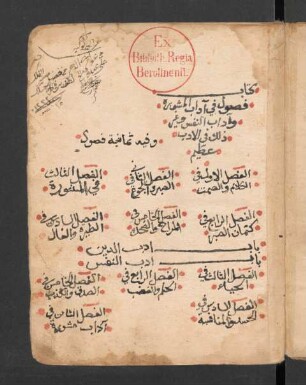 Ex
Biblioth. Regia
Berolinenſi.
كتاب
فصول في آداب المشورة
وآداب النفس وغير
ذلك في الادب
عظيم
وفيه ثمانية فصول
الفصل الاول في الكلام والصمت
الفصل الثاني في الصبر والجزع
الفصل الثالث في المشورة
الفصل الرابع في كتمان السر
الفصل الخامس في المزاح والضحك
الفصل السادس في الطيرة والفال
باب ادب الدين
باب ادب النفس
الفصل الثالث في الحياء
الفصل الرابع في الحلم والغضب
الفصل الخامس في الصدق والكذب
الفصل السادس في الحسد والمنافسة
الفصل الثامن في آداب المشورة